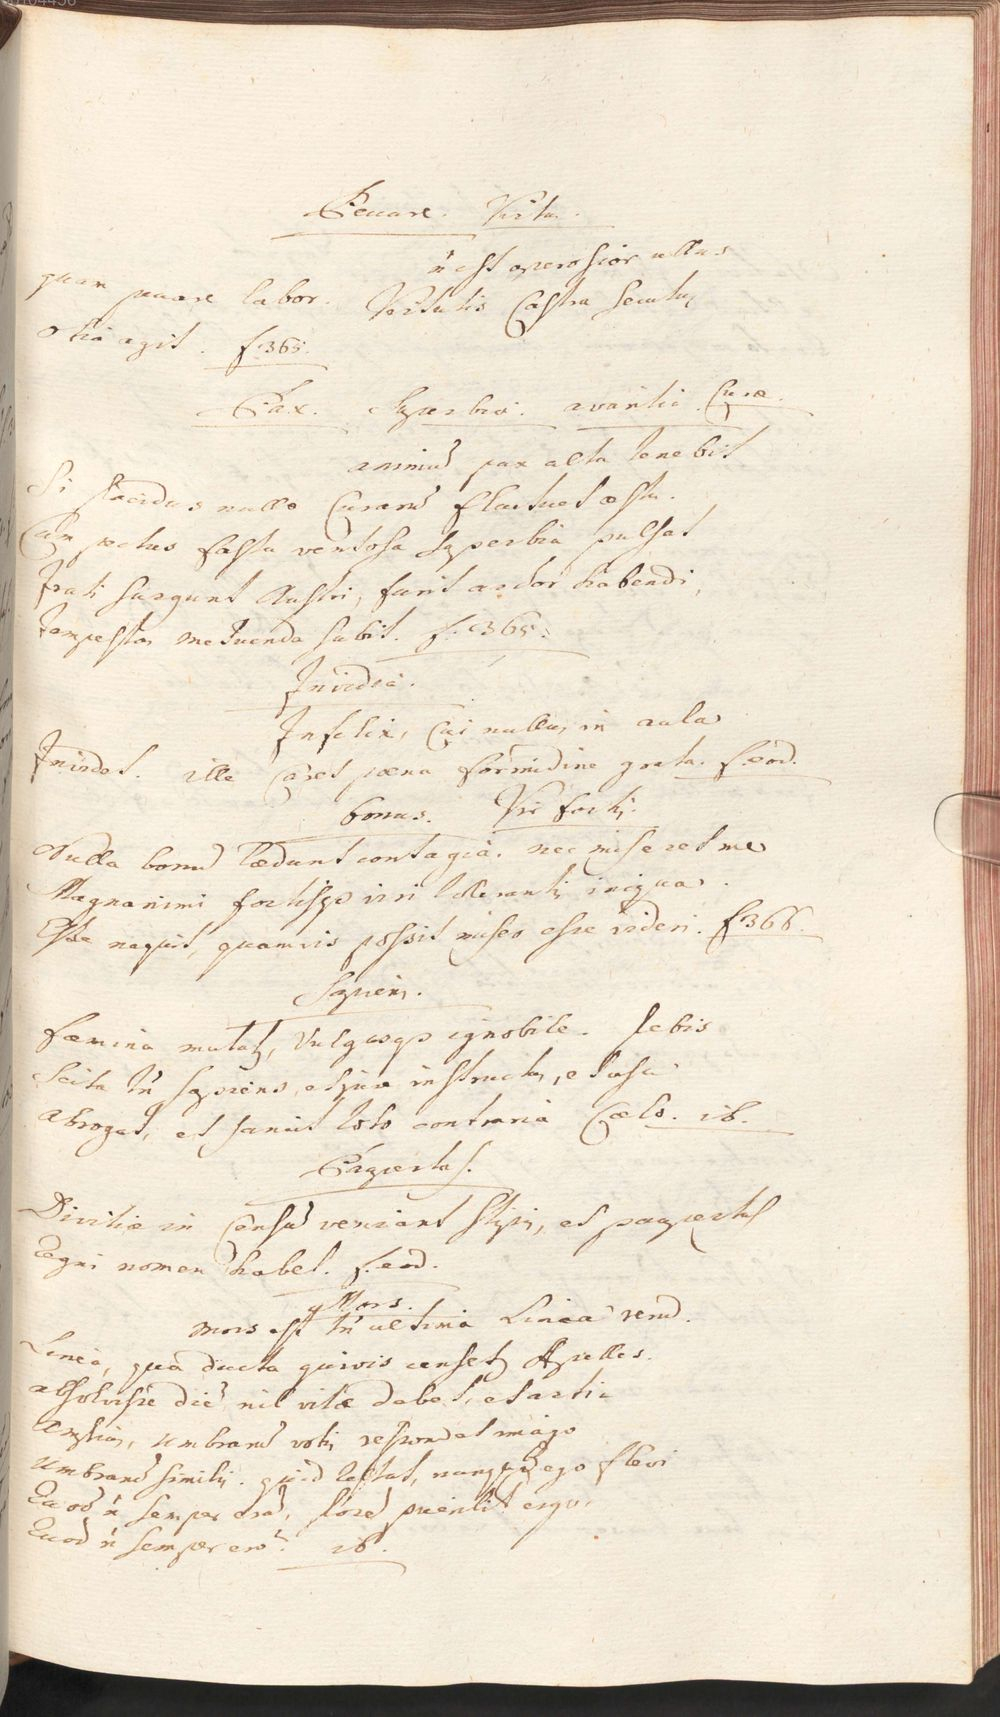 Peccare. Virtus.
n̄ est operosior ullus
quam peccare labor. Virtutis Castra secutus
Otia agit. f. 365.
Pax. Superbia. avaritia Curae.
animū pax alta tenebit
Si placidus nullo Curarū fluctuet aestu.
Cum pectus fastu ventosa Superbia pulsat
Irati surgunt Austri, furit ardor habendi,
Tempestas metuenda subit. f. 365.
Invidia.
Infelix, Cui nullus in aula
Invidet. ille Caret poena formidine grata. f. eod.
bonus. Vir fortis.
Nulla bonū laedunt contagia. nec miseret me
Magnanimi fortisque viri tolerantis iniqua.
Esse nequit, quamvis possit miser esse videri. f 366.
Sapiens.
foemina mutatur, Vulgusque ignobile. plebis
Scita tn̄ sapiens, et jure instructus, et usu
Abrogat, et sancit toto contraria Caelo. ib.
Paupertas.
Divitiae in Censū veniant stipis, et paupertas
Regni nomen habet. f. eod.
Mors.
mors est tn̄ ultima Linea rerū.
Linea, qua ducta quivis censetur Apelles
absolvisse diē, nil vitae debet, et arti
Amplius, umbrarū votis respondet imago
Umbrarū similis. quid restat, nunquid ego flevi
Quod n̄ semper erā, flore ergo
Quod n̄ semper ero? ib.